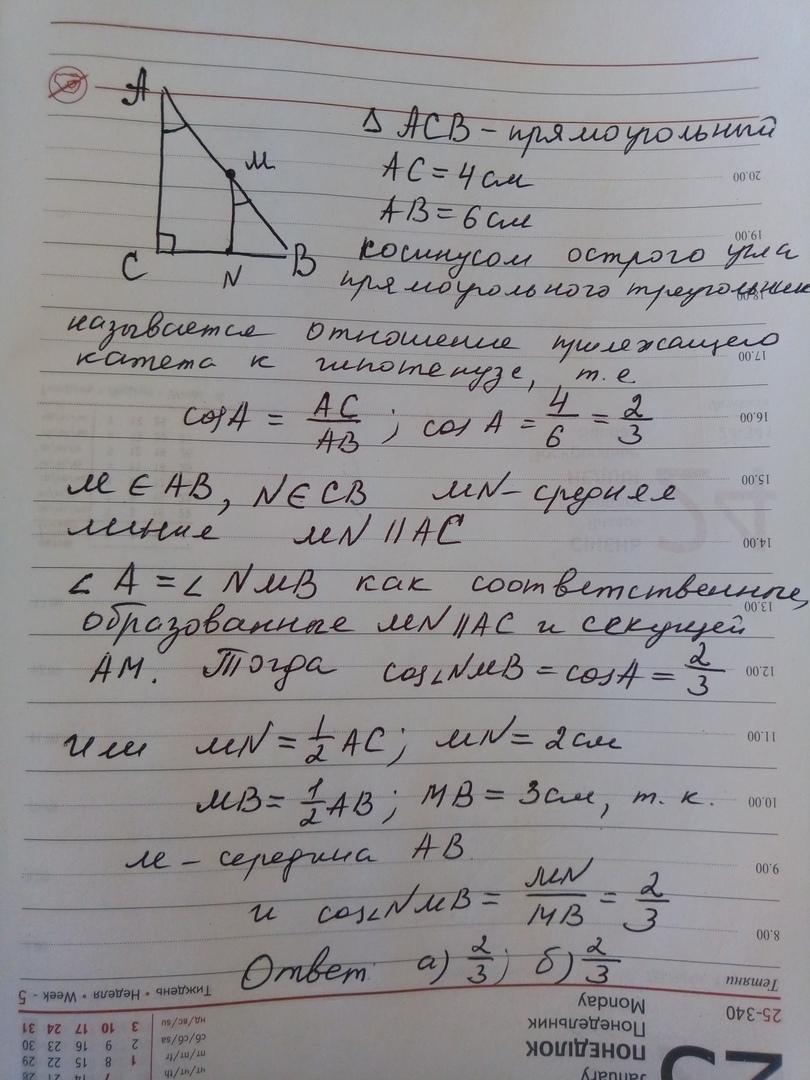 A
M
C
N
B
Δ ACB – прямоугольный
AC = 4 см
AB = 6 см
косинусом острого угла
прямоугольного треугольник
называется отношение прилежащего
катета к гипотенузе, т.е
cos A = AC/AB ; cos A = 4/6 = 2/3
M ∈ AB, N ∈ CB MN – средняя
линия MN || AC
∠ A = ∠ NMB как соответственные,
образованные MN || AC и секущей
AM. Тогда cos∠NMB = cos A = 2/3
или MN = 1/2 AC ; MN = 2 см
MB = 1/2 AB ; MB = 3 см, т. к.
M – середина AB
и cos∠NMB = MN/MB = 2/3
Ответ а) 2/3 ; б) 2/3
20.00
19.00
18.00
17.00
16.00
15.00
14.00
13.00
12.00
11.00
10.00
9.00
8.00
Тетяни
25-340
Monday
Понедельник
ПОНЕДІЛОК
January
Тиждень • Неделя • Week - 5
нд/вс/su 3 10 17 24 31
сб/сб/sa 2 9 16 23 30
пт/пт/fr 1 8 15 22 29
чт/чт/th 7 14 21 28